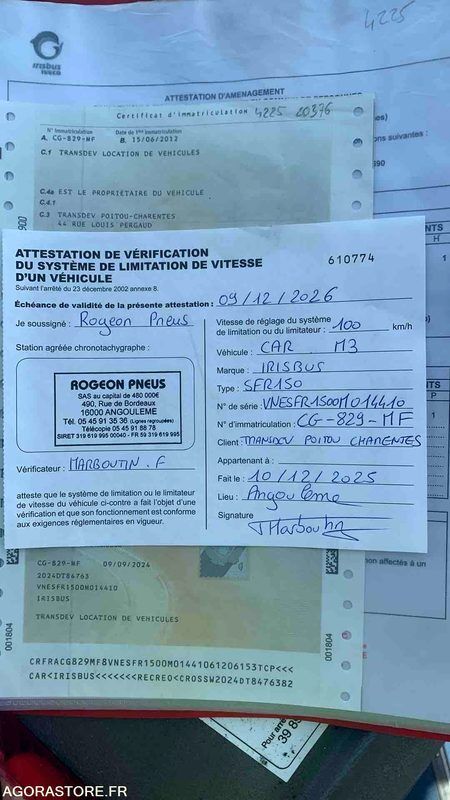 4225
irisbus
IVECO
ATTESTATION D'AMENAGEMENT
Certificat d'immatriculation 4225 20376
N° Immatriculation
Date de 1ère immatriculation
A. CG-829-MF
B. 15/06/2012
C.1 TRANSDEV LOCATION DE VEHICULES
C.4a EST LE PROPRIETAIRE DU VEHICULE
C.4.1
C.3 TRANSDEV POITOU-CHARENTES
44 RUE LOUIS PERGAUD
ons suivantes :
ATTESTATION DE VÉRIFICATION
DU SYSTÈME DE LIMITATION DE VITESSE
D'UN VÉHICULE
610774
Suivant l'arrêté du 23 décembre 2002 annexe 8.
Échéance de validité de la présente attestation : 09/12/2026
Je soussigné : Rogeon Pneus
Station agréée chronotachygraphe :
ROGEON PNEUS
SAS au capital de 480 000€
490, Rue de Bordeaux
16000 ANGOULEME
Tél. 05 45 91 35 36 (Lignes regroupées)
Télécopie 05 45 91 88 78
SIRET 319 619 995 00040 - FR 59 319 619 995
Vérificateur : MARBOUTIN. F
atteste que le système de limitation ou le limiteur
de vitesse du véhicule ci-contre a fait l'objet d'une
vérification et que son fonctionnement est conforme
aux exigences réglementaires en vigueur.
Vitesse de réglage du système
de limitation ou du limiteur : 100 km/h
Véhicule : CAR M3
Marque : IRISBUS
Type : SFR150
N° de série : VNESFR1500M014410
N° d'immatriculation : CG-829-MF
Client TRANSDEV POITOU CHARENTES
Appartenant à :
Fait le : 10/12/2025
Lieu : Angoulême
Signature
CG-829-MF 09/09/2024
2024DT84763
VNESFR1500M014410
IRISBUS
TRANSDEV LOCATION DE VEHICULES
001804
001804
CRFRACG829MF8VNESFR1500M01441061206153TCP<<<
CAR<IRISBUS<<<<<<<RECREO<CROSSW2024DT8476382
non affectés à un
AGORASTORE.FR